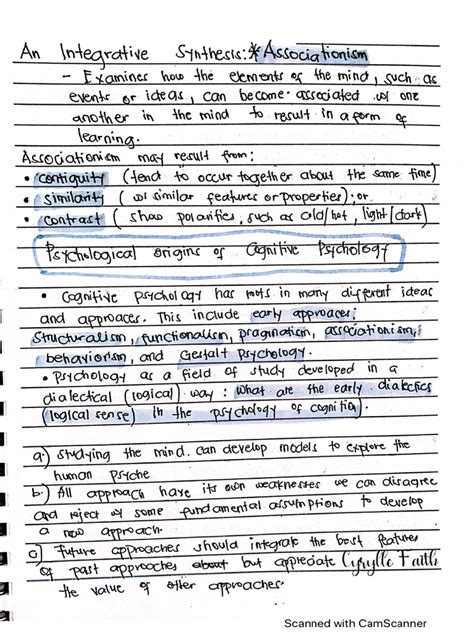 An Integrative Synthesis: * Associationism
- Examines how the elements of the mind, such as
events or ideas, can become associated w/ one
another in the mind to result in a form of
learning.
Associationism may result from:
• contiguity (tend to occur together about the same time)
• similarity (w/ similar features or properties); or
• contrast (show polarities, such as old/hot, light/dark)
Psychological origins of Cognitive Psychology
• Cognitive psychology has roots in many different ideas
and approaces. This include early approaces;
Structuralism, functionalism, pragmatism, associationism,
behaviorism, and Gestalt Psychology.
• Psychology as a field of study developed in a
dialectical (logical) way: What are the early dialectics
(logical sense) in the psychology of cognition.
a) Studying the mind. can develop models to explore the
human Psyche
b) All approach have its own weaknesses we can disagree
and reject w/ some fundamental assumptions to develop
a new approach.
c) Future approaches should integrate the best features
of past approaches about but appreciate Cyrylle Faith
the value of other approaches.
Scanned with CamScanner